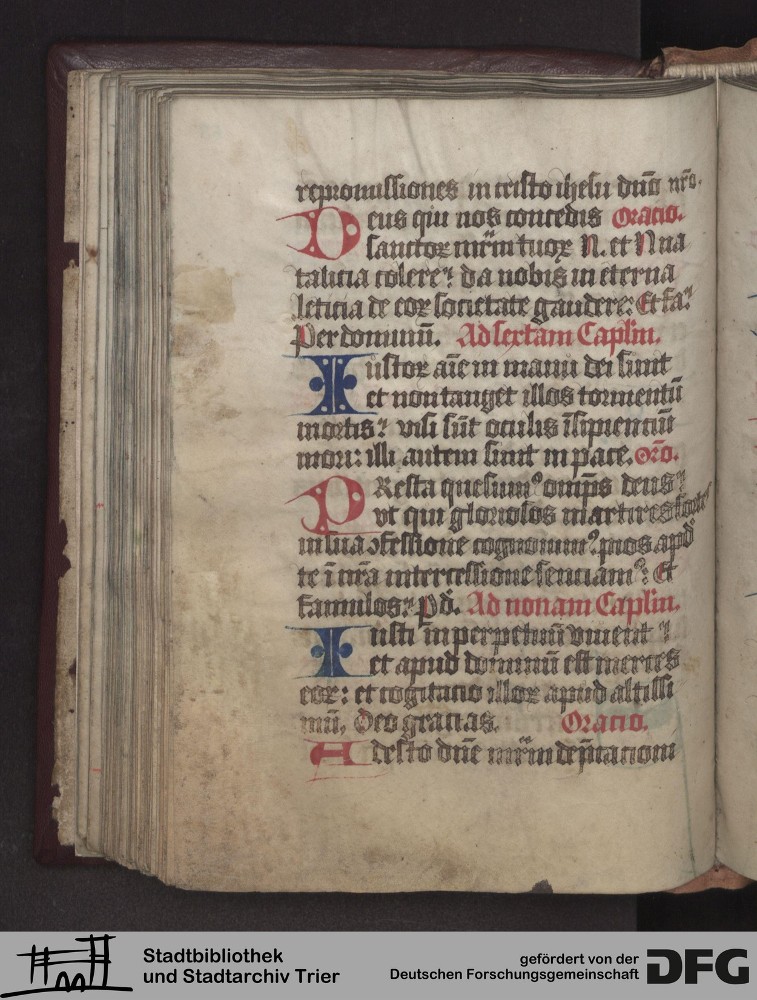 repromissiones in cristo ihesu dn̄o nr̄o.
Deus qui nos concedis Oracio.
sanctoꝝ mr̄m tuoꝝ N. et N na
talicia colere: da nobis in eterna
leticia de eoꝝ societate gaudere: Et fa.
Per dominū. Ad sextam Caplm.
Iustoꝝ aīe in manu dei sunt
et non tanget illos tormentū
mortis: visi sūt oculis īsipientiū
mori: illi autem sunt in pace. Or̄o.
PResta quesumꝰ omp̄s deus:
vt qui gloriosos martires fortes
in sua ↄfessione cognouimꝰ. pios apd̄
te ī nr̄a intercessione senciamꝰ: Et
famulos: Pd. Ad nonam Caplm.
Iusti in perpetuū viuent
et apud dominū est merces
eoꝝ: et cogitacio illoꝝ apud altissi
mū. Deo gracias. Oracio.
Adesto dn̄e mr̄m dep̄cationi
Stadtbibliothek
und Stadtarchiv Trier
gefördert von der
Deutschen Forschungsgemeinschaft DFG